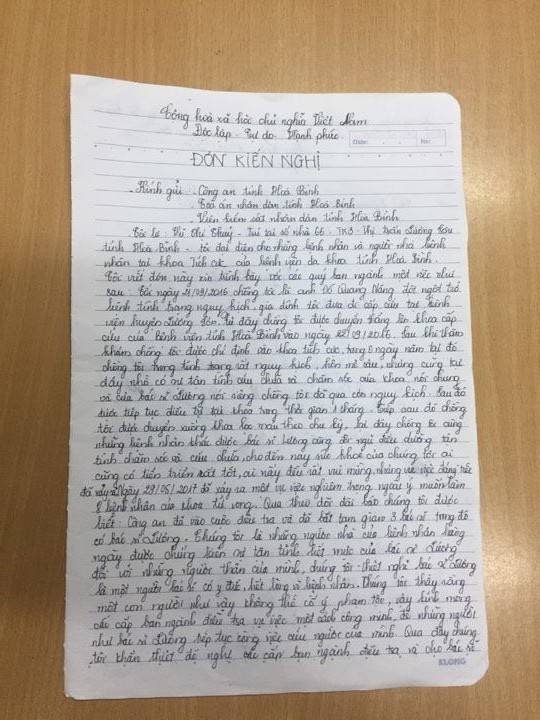 Cộng hoà xã hội chủ nghĩa Việt Nam
Độc lập - Tự do - Hạnh phúc
Date: No:
ĐƠN KIẾN NGHỊ
Kính gửi: - Công an tỉnh Hoà Bình
- Toà án nhân dân tỉnh Hoà Bình
- Viện kiểm sát nhân dân tỉnh Hoà Bình
Tôi là: Thị Thuỷ - Trú tại số nhà 66 - TK3 - Thị trấn Lương Sơn
tỉnh Hoà Bình - tôi đại diện cho những bệnh nhân và người nhà bệnh
nhân tại khoa Tích cực của bệnh viện đa khoa tỉnh Hoà Bình.
Tôi viết đơn này xin trình bày với các quý ban ngành một việc như
sau: Tối ngày 21/09/2016 chồng tôi là anh Đỗ Quang Năng đột ngột trở
bệnh tình trạng nguy kịch, gia đình tôi đưa đi cấp cứu tại bệnh
viện huyện Lương Sơn. Từ đây chồng tôi được chuyển thẳng lên khoa cấp
cứu của bệnh viện tỉnh Hoà Bình vào ngày 22/09/2016. Sau khi thăm
khám chồng tôi được chỉ định vào khoa tích cực, trong ngày nằm tại đó
chồng tôi trong tình trạng rất nguy kịch, hôn mê sâu, nhưng cũng tại
đây nhờ có sự tận tình cứu chữa và chăm sóc của khoa nói chung
và của bác sĩ Lương nói riêng chồng tôi đã qua cơn nguy kịch. Sau đó
được tiếp tục điều trị tại khoa trong thời gian 1 tháng. Tiếp sau đó chồng
tôi được chuyển xuống khoa lọc máu theo chu kỳ, tại đây chồng tôi cùng
những bệnh nhân khác được bác sĩ Lương cùng đội ngũ điều dưỡng tận
tình chăm sóc và cứu chữa, cho đến nay sức khoẻ của chúng tôi ai
cũng có tiến triển rất tốt, ai nấy đều rất vui mừng, nhưng việc đáng tiếc
đã xảy ra ngày 29/05/2017 đã xảy ra một vụ việc nghiêm trọng ngoài ý muốn làm
bệnh nhân của khoa tử vong. Qua theo dõi đài báo chúng tôi được
biết: Công an đã vào cuộc điều tra và đã bắt tạm giam 3 bác sĩ trong đó
có bác sĩ Lương. Chúng tôi là những người nhà của bệnh nhân hàng
ngày được chứng kiến sự tận tình hết mực của bác sĩ Lương
đối với những người thân của mình, chúng tôi thiết nghĩ bác sĩ Lương
là một người bác sĩ có y đức, hết lòng vì bệnh nhân. Chúng tôi thấy rằng
một con người như vậy không thể cố ý phạm tội, vậy kính mong
các cấp ban ngành điều tra vụ việc một cách công minh, để những người
như bác sĩ Lương tiếp tục công việc cứu người của mình. Qua đây chúng
tôi khẩn thiết đề nghị các cấp ban ngành điều tra và cho bác sĩ
KLONG